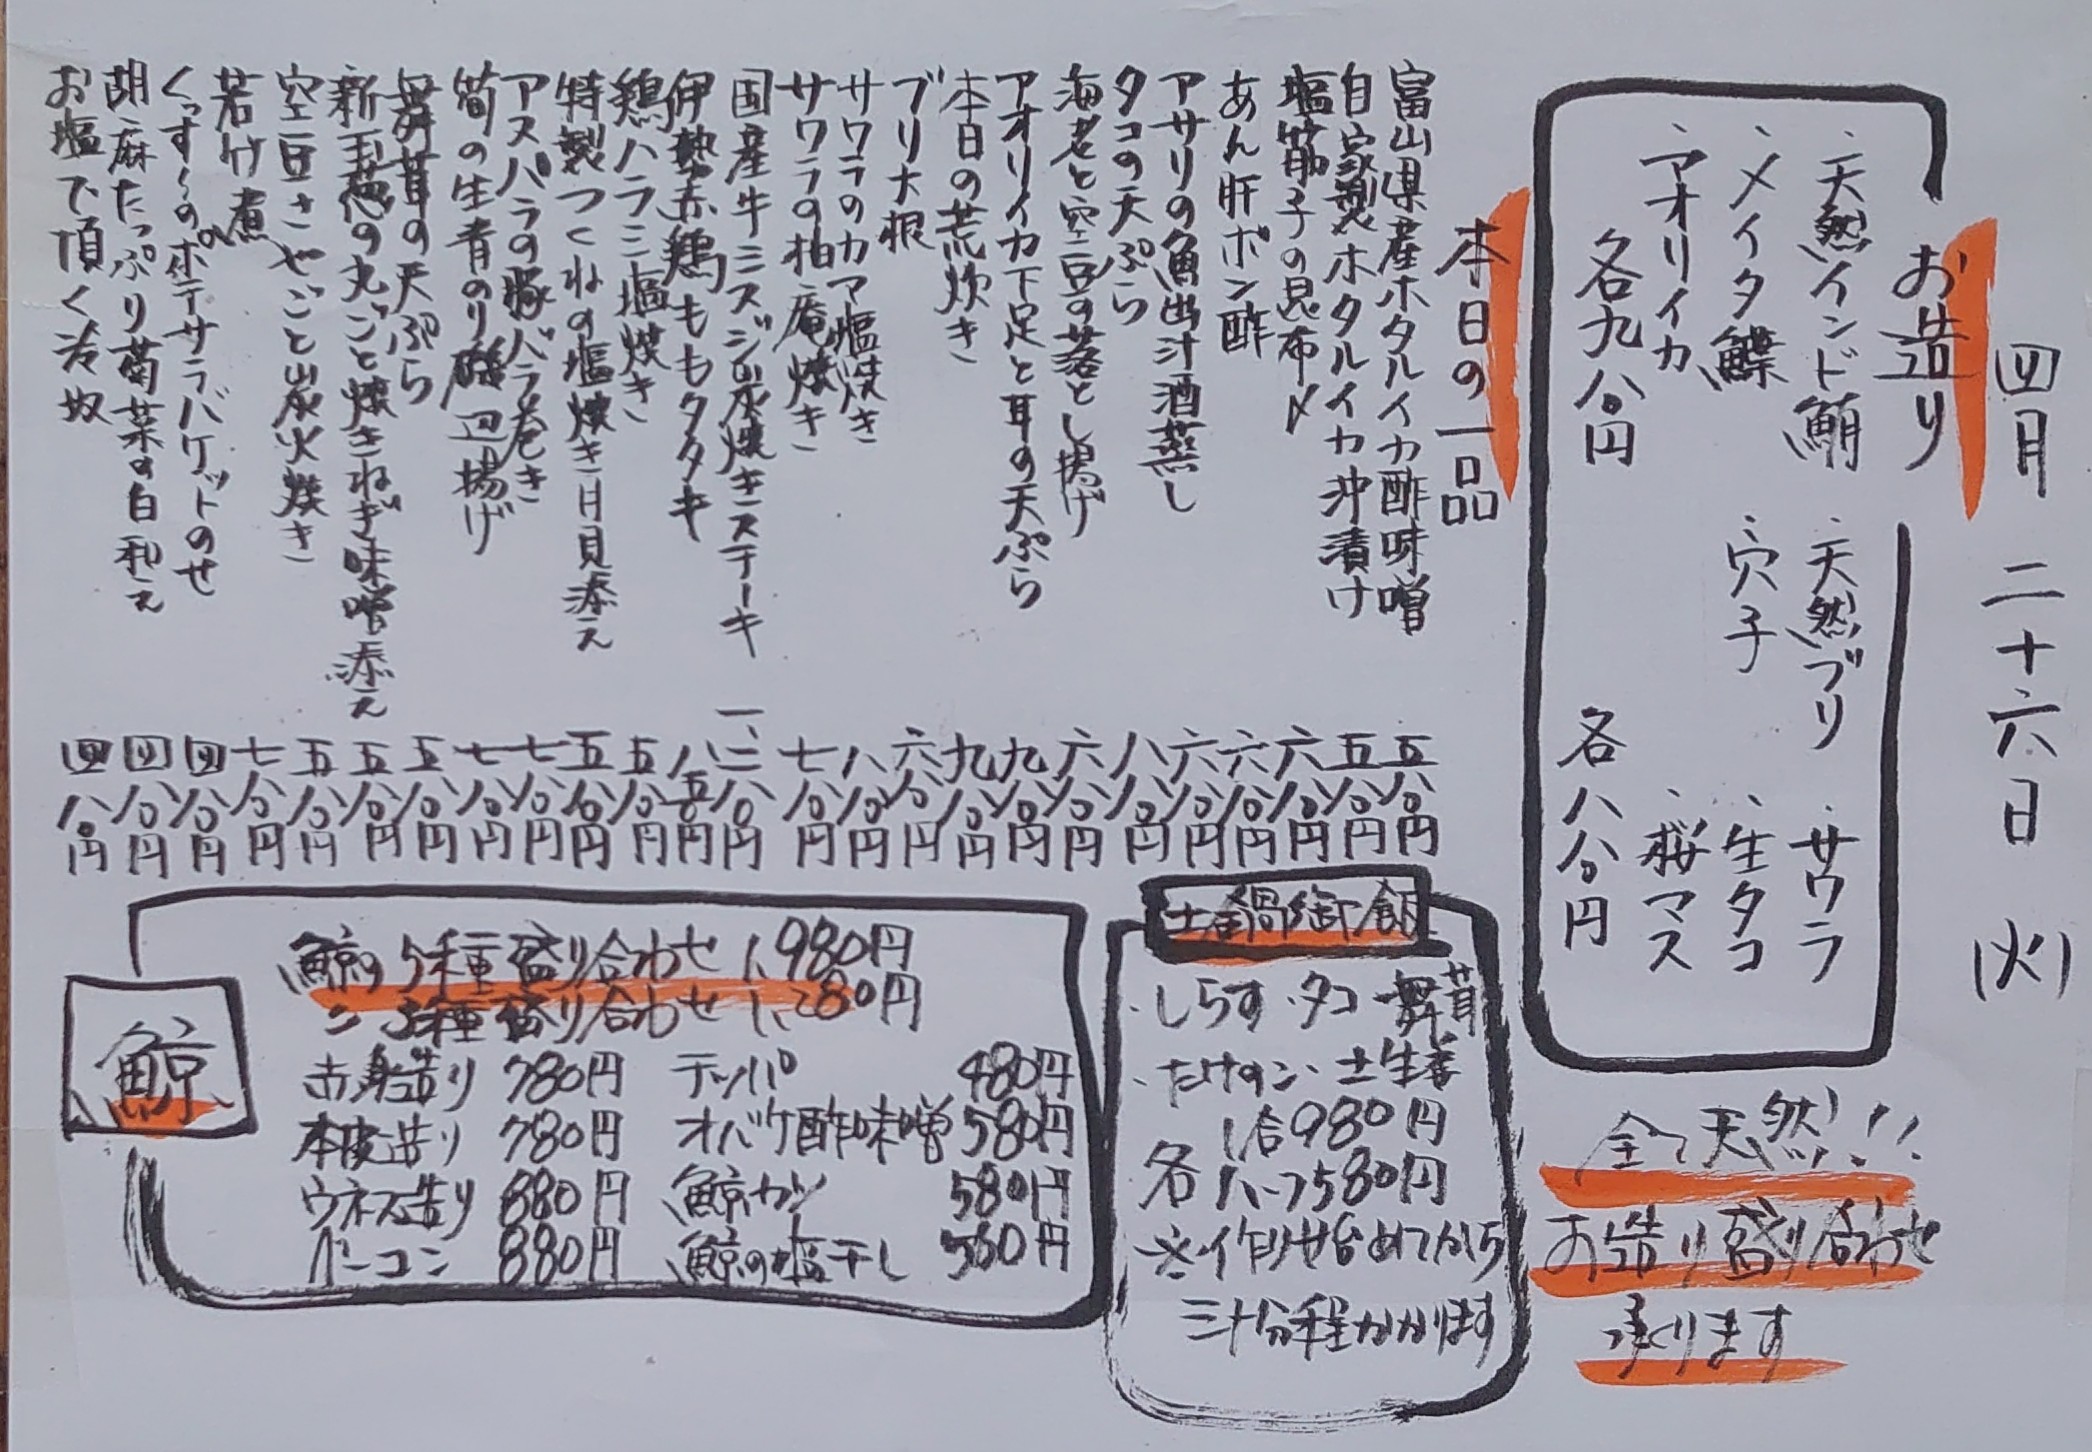 四月二十六日(火)
お造り
・天然インド鮪 ・天然ブリ ・サワラ
・メイタ鰈 ・穴子 ・生タコ
・アオリイカ ・桜マス
各九八〇円 各八八〇円
全て天然!!
お造り盛り合わせ
承ります
本日の一品
富山県産ホタルイカ酢味噌 五八〇円
自家製ホタルイカ沖漬け 五八〇円
塩筋子の昆布〆 六八〇円
あん肝ポン酢 六八〇円
アサリの魚出汁酒蒸し 六八〇円
タコの天ぷら 八八〇円
海老と空豆の落とし揚げ 六八〇円
アオリイカ下足と耳の天ぷら 九八〇円
本日の荒炊き 九八〇円
ブリ大根 六八〇円
サワラのカマ塩焼き 八八〇円
サワラの柚庵焼き 七八〇円
国産牛ミスジ炭焼きステーキ 一、二八〇円
伊勢赤鶏ももタタキ 八五〇円
鶏ハラミ塩焼き 五八〇円
特製つくねの塩焼き月見添え 五八〇円
アスパラの豚バラ巻き 七八〇円
筍の生青のり磯辺揚げ 七八〇円
舞茸の天ぷら 五八〇円
新玉葱の丸ごと焼きねぎ味噌添え 五八〇円
空豆さやごと炭火焼き 五八〇円
若竹煮 七八〇円
くっすーのポテサラバケットのせ 四八〇円
胡麻たっぷり菊菜の白和え 四八〇円
お塩で頂く冷奴 四八〇円
土鍋御飯
・しらす・タコ・舞茸
・たけのこ・土生姜
各 1合980円
ハーフ580円
※作り始めてから
三十分程かかります
鯨
鯨の5種盛り合わせ 1,980円
〃 3種盛り合わせ 1,280円
赤身造り 780円 テッパ 480円
本皮造り 780円 オバケ酢味噌 580円
ウネス造り 880円 鯨カツ 580円
ベーコン 880円 鯨の塩干し 580円